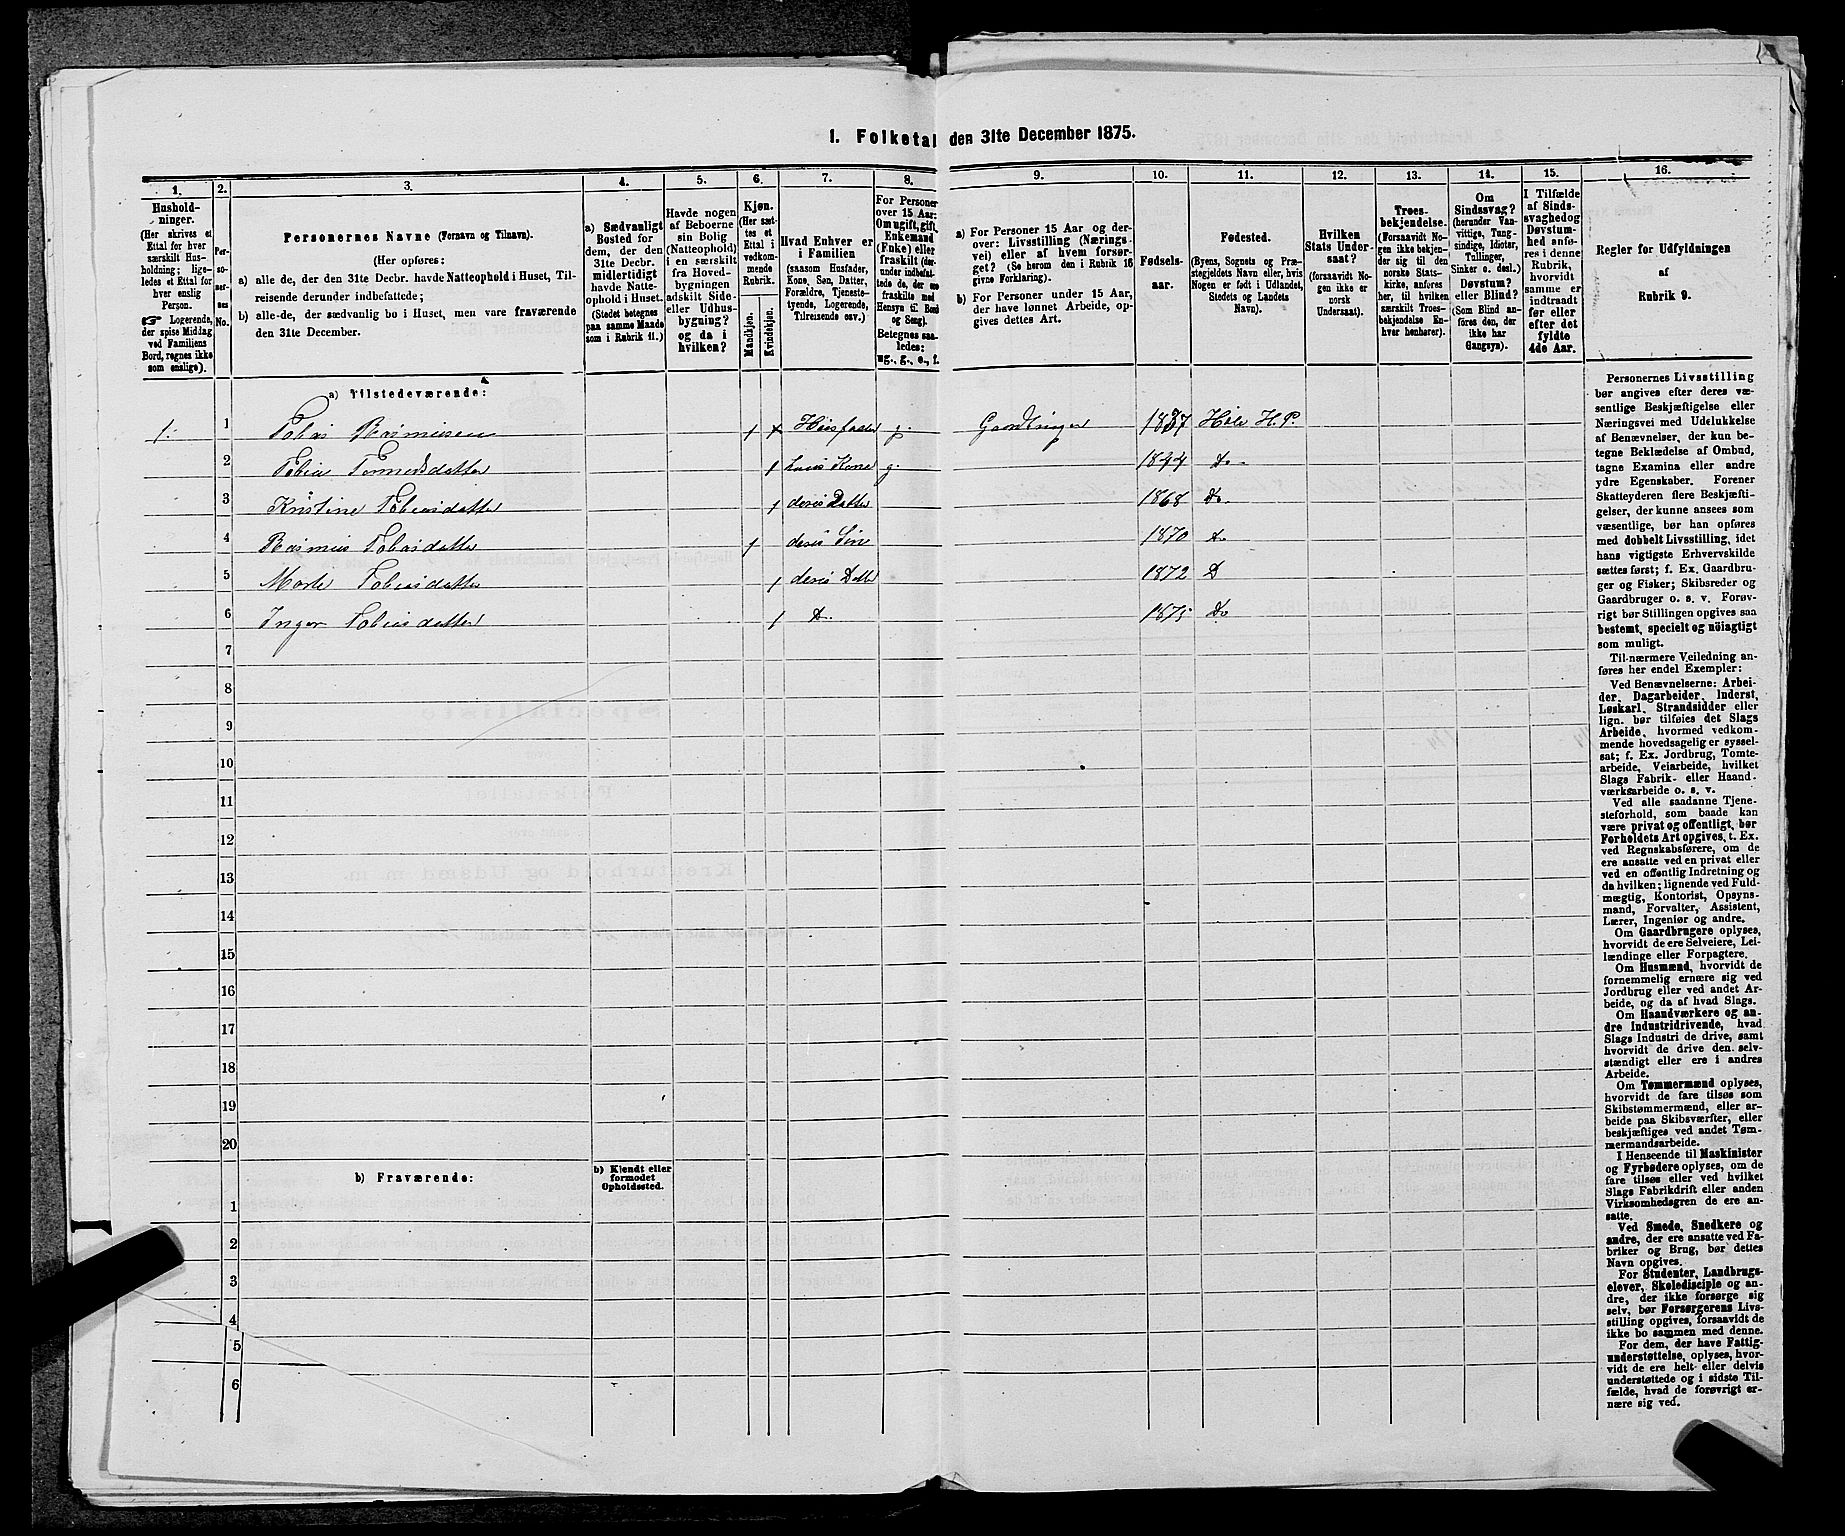 1. Folketal den 31te December 1875.
1. 2. 3. 4. 5. 6. 7. 8. 9. 10. 11. 12. 13. 14. 15. 16.
Hushold-
ninger.
(Her skrives et
Ettal for hver
særskilt Hus-
holdning; lige-
ledes et Ettal for
hver enslig
Person.
☞ Logerende,
der spise Middag
ved Familiens
Bord, regnes ikke
som enslige).
Per-
so-
ner-
nes
No.
Personernes Navne (Fornavn og Tilnavn).
(Her opføres:
a) alle de, der den 31te Decbr. havde Natteophold i Huset, Til-
reisende derunder indbefattede;
b) alle de, der sædvanlig bo i Huset, men vare fraværende
den 31te December.
a) Sædvanligt
Bosted for
dem, der den
31te Decbr.
midlertidigt
havde Natte-
ophold i Huset.
(Stedet betegnes
paa samme Maade
som i Rubrik 11.)
Havde nogen
af Beboerne
sin Bolig
(Natteophold)
i en særskilt
fra Hoved-
bygningen
adskilt Side-
eller Udhus-
bygning?
og da i
hvilken?
Kjøn.
(Her sæt-
tes et
Ettal i
vedkom-
mende
Rubrik.
Mandkjøn.
Kvindekjøn.
Hvad Enhver er
i Familien
(saasom Husfader,
Kone, Søn, Datter,
Forældre, Tjeneste-
tyende, Logerende,
Tilreisende osv.)
For Personer
over 15 Aar:
Om ugift, gift,
Enkemand
(Enke) eller
fraskilt (der-
under indbefat-
tede de, der ere
fraskilte med
Hensyn til Bord
og Seng).
Betegnes saa-
ledes:
ug., g., e., f.
a) For Personer 15 Aar og der-
over: Livsstilling (Nærings-
vei) eller af hvem forsør-
get? (Se herom den i Rubrik 16
givne Forklaring).
b) For Personer under 15 Aar,
der have lønnet Arbeide, op-
gives dettes Art.
Fødsels-
aar.
Fødested.
(Byens, Sognets og Præ-
stegjeldets Navn eller, hvis
Nogen er født i Udlandet,
Stedets og Landets
Navn).
Hvilken
Stats Under-
saat?
(forsaavidt No-
gen ikke er
norsk
Undersaat).
Troes-
bekjendelse.
(Forsaavidt No-
gen ikke bekjen-
der sig til den
norske Stats-
kirke, anføres
her, til hvilken
særskilt Troes-
bekjendelse En-
hver henhører).
Om
Sindssvag?
(herunder Van-
vittige, Tung-
sindige, Idioter,
Tullinger,
Sinker o. desl.)
Døvstum?
eller Blind?
(Som Blind an-
føres den, der
ikke har
Gangsyn).
I Tilfælde
af Sinds-
svaghed og
Døvstum-
hed anfø-
res i denne
Rubrik,
hvorvidt
samme er
indtraadt
før eller
efter det
fyldte
4de Aar.
Regler for Udfyldningen
af
Rubrik 9.
a) Tilstedeværende:
1. 1 Tobias Rasmusen 1 Huusfader g. Gaardbruger 1837 Hole H. P.
2 Tobine Tormodsdatter 1 hans Kone g. 1844 Do
3 Kristine Tobiasdatter 1 deres Datter 1868 Do
4 Rasmus Tobiasdatter 1 deres Søn 1870 Do
5 Marte Tobiasdatter 1 deres Datte 1872 D
6 Inger Tobiasdatter 1 D. 1875 Do
7
8
9
10
11
12
13
14
15
16
17
18
19
20
b) Fraværende:
b) Kjendt eller
formodet
Opholdssted.
1
2
3
4
5
6
Personernes Livsstilling
bør angives efter deres væ-
sentlige Beskjæftigelse eller
Næringsvei med Udelukkelse
af Benævnelser, der kun be-
tegne Beklædelse af Ombud,
tagne Examina eller andre
ydre Egenskaber. Forener
Skatteyderen flere Beskjæfti-
gelser, der kunne ansees som
væsentlige, bør han opføres
med dobbelt Livsstilling, idet
hans vigtigste Erhvervskilde
sættes først; f. Ex. Gaardbru-
ger og Fisker; Skibsreder og
Gaardbruger o. s. v. Forøv-
rigt bør Stillingen opgives saa
bestemt, specielt og nöiagtigt
som muligt.
Til nærmere Veiledning an-
føres her endel Exempler:
Ved Benævnelserne: Arbei-
der, Dagarbeider, Inderst,
Løskarl, Strandsidder eller
lign. bør tilføies det Slags
Arbeide, hvormed vedkom-
mende hovedsagelig er syssel-
sat; f. Ex. Jordbrug, Tomte-
arbeide, Veiarbeide, hvilket
Slags Fabrik- eller Haand-
værksarbeide o. s. v.
Ved alle saadanne Tjene-
steforhold, som baade kan
være privat og offentligt, bør
Forholdets Art opgives, t. Ex.
ved Regnskabsførere, om de
ere ansatte ved en privat eller
ved en offentlig Indretning og
da hvilken; lignende ved Fuld-
mægtig, Kontorist, Opsyns-
mand, Forvalter, Assistent,
Lærer, Ingeniør og andre.
Om Gaardbrugere oplyses,
hvorvidt de ere Selveiere, Lei-
lændinge eller Forpagtere.
Om Husmænd, hvorvidt de
fornemmelig ernære sig ved
Jordbrug eller ved andet Ar-
beide, og da af hvad Slags.
Om Haandværkere og an-
dre Industridrivende, hvad
Slags Industri de drive, samt
hvorvidt de drive den selv-
stændigt eller ere i andres
Arbeide.
Om Tømmermænd oplyses,
hvorvidt de fare tilsøs som
Skibstømmermænd, eller ar-
beide paa Skibsværfter, eller
beskjæftiges ved andet Tøm-
mermandsarbeide.
I Henseende til Maskinister
og Fyrbødere oplyses, om de
fare tilsøs eller ved hvilket
Slags Fabrikdrift eller anden
Virksomhedsgren de ere an-
satte.
Ved Smede, Snedkere og
andre, der ere ansatte ved Fa-
briker og Brug, bør dettes
Navn opgives.
For Studenter, Landbrugs-
elever, Skoledisciple og an-
dre, der ikke forsørge sig
selv, bør Forsørgerens Livs-
stilling opgives, forsaavidt de
ikke bo sammen med denne.
For dem, der have Fattig-
understøttelse, oplyses, hvor-
vidt de ere helt eller delvis
understøttede og i sidste Til-
fælde, hvad de forøvrigt er-
nære sig ved.